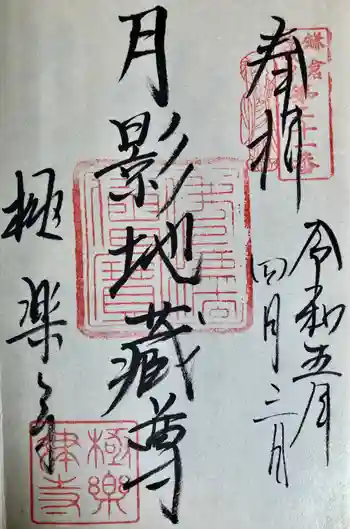 奉拝
鎌倉第二十番
令和五年
四月二日
月影地蔵尊
極楽寺
極樂律寺